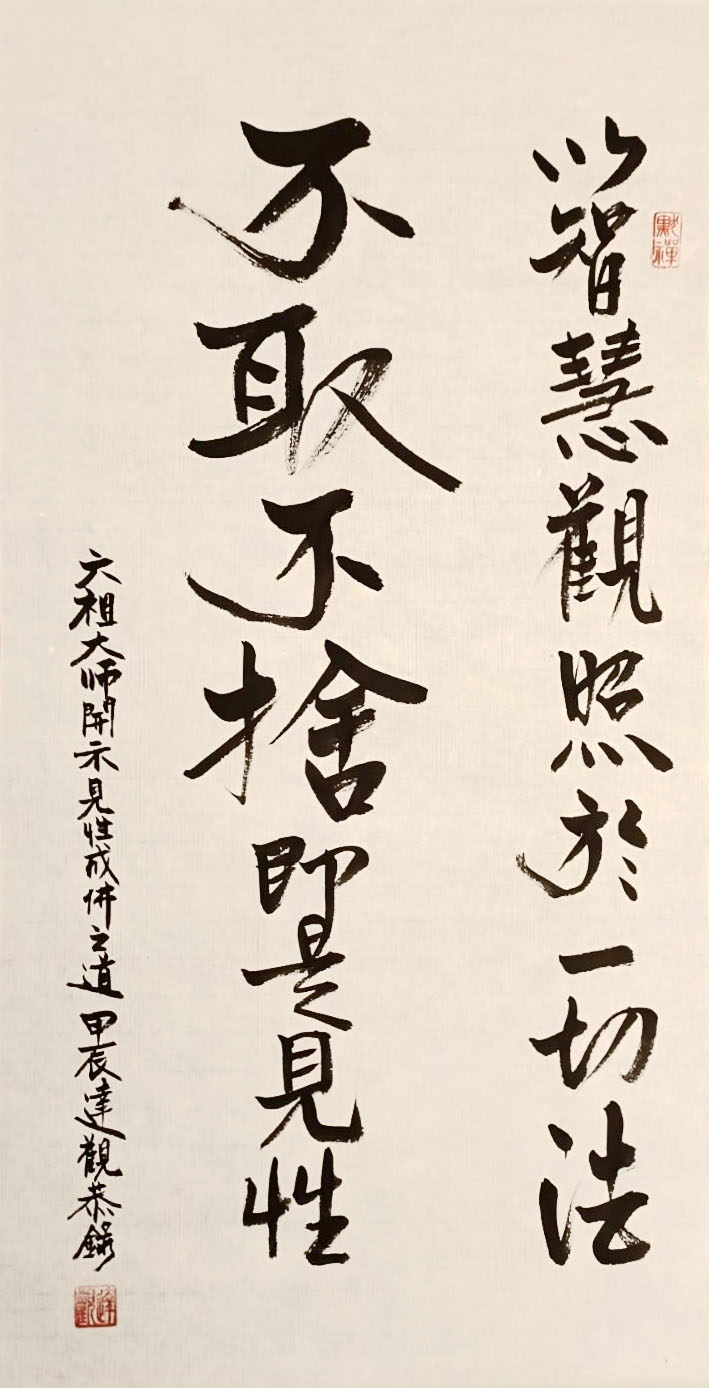 以智慧觀照於一切法
不取不捨即是見性
六祖大师開示見性成佛之道 甲辰達觀恭錄
達觀